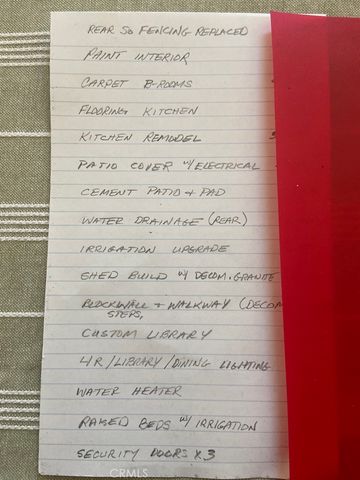 REAR SO FENCING REPLACED
PAINT INTERIOR
CARPET B-ROOMS
FLOORING KITCHEN
KITCHEN REMODEL
PATIO COVER W/ELECTRICAL
CEMENT PATIO + PAD
WATER DRAINAGE (REAR)
IRRIGATION UPGRADE
SHED BUILD W/ DECOM. GRANITE
BLOCKWALL + WALKWAY (DECOM
STEPS,
CUSTOM LIBRARY
LIBRARY/DINING LIGHTING
WATER HEATER
RAISED BEDS W/ IRRIGATION
SECURITY DOORS X 3
CRMLS